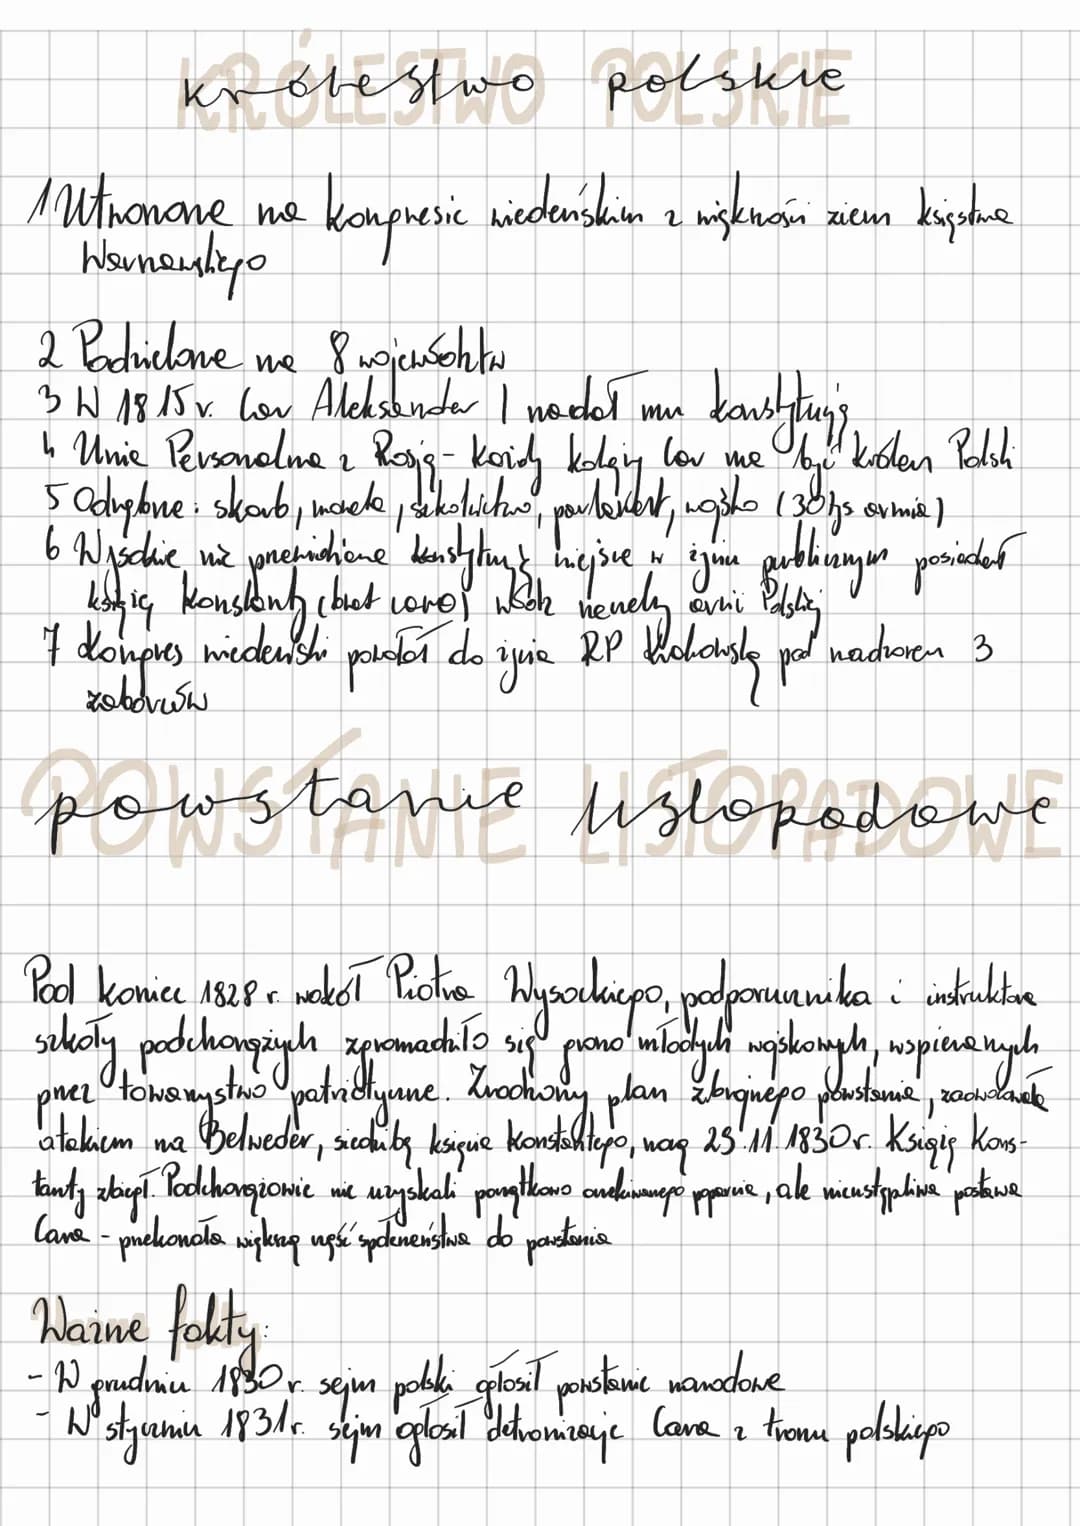 KRÓLESTWO POLSKIE
królestwo polskie
1 Utworzone na kongresie wiedeńskim z większości ziem księstwa
Warszawskiego
2 Podzielone na 8 województw
3 W 1815 r. Car Aleksander I nadał mu konstytucję
4 Unia Personalna z Rosją - każdy kolejny Car ma być królem Polski
5 Odrębne: skarb, moneta, szkolnictwo, parlament, wojsko (30tys armia)
6 Wysokie, nie przewidziane konstytucją miejsce w życiu publicznym posiadał
książę Konstanty (brat cara) wódz naczelny armii Polskiej
7 Kongres wiedeński powołał do życia RP Krakowską pod nadzorem 3
zaborców
POWSTANIE LISTOPADOWE
powstanie listopadowe
Pod koniec 1828 r. wokół Piotra Wysockiego, podporucznika i instruktora
szkoły podchorążych zgromadziło się grono młodych wojskowych, wspieranych
przez towarzystwo patriotyczne. Zrodzony plan zbrojnego powstania,
atakiem na Belweder, siedzibę księcia Konstantego, nocą 29.11.1830r. Książę Kons-
tanty zbiegł. Podchorążowie nie uzyskali początkowo oczekiwanego poparcia, ale nieustępliwa postawa
Cara - przekonała większą część społeczeństwa do powstania
Ważne fakty:
- W grudniu 1830 r. sejm polski ogłosił powstanie narodowe
- W styczniu 1831r. sejm ogłosił detronizację Cara z tronu polskiego